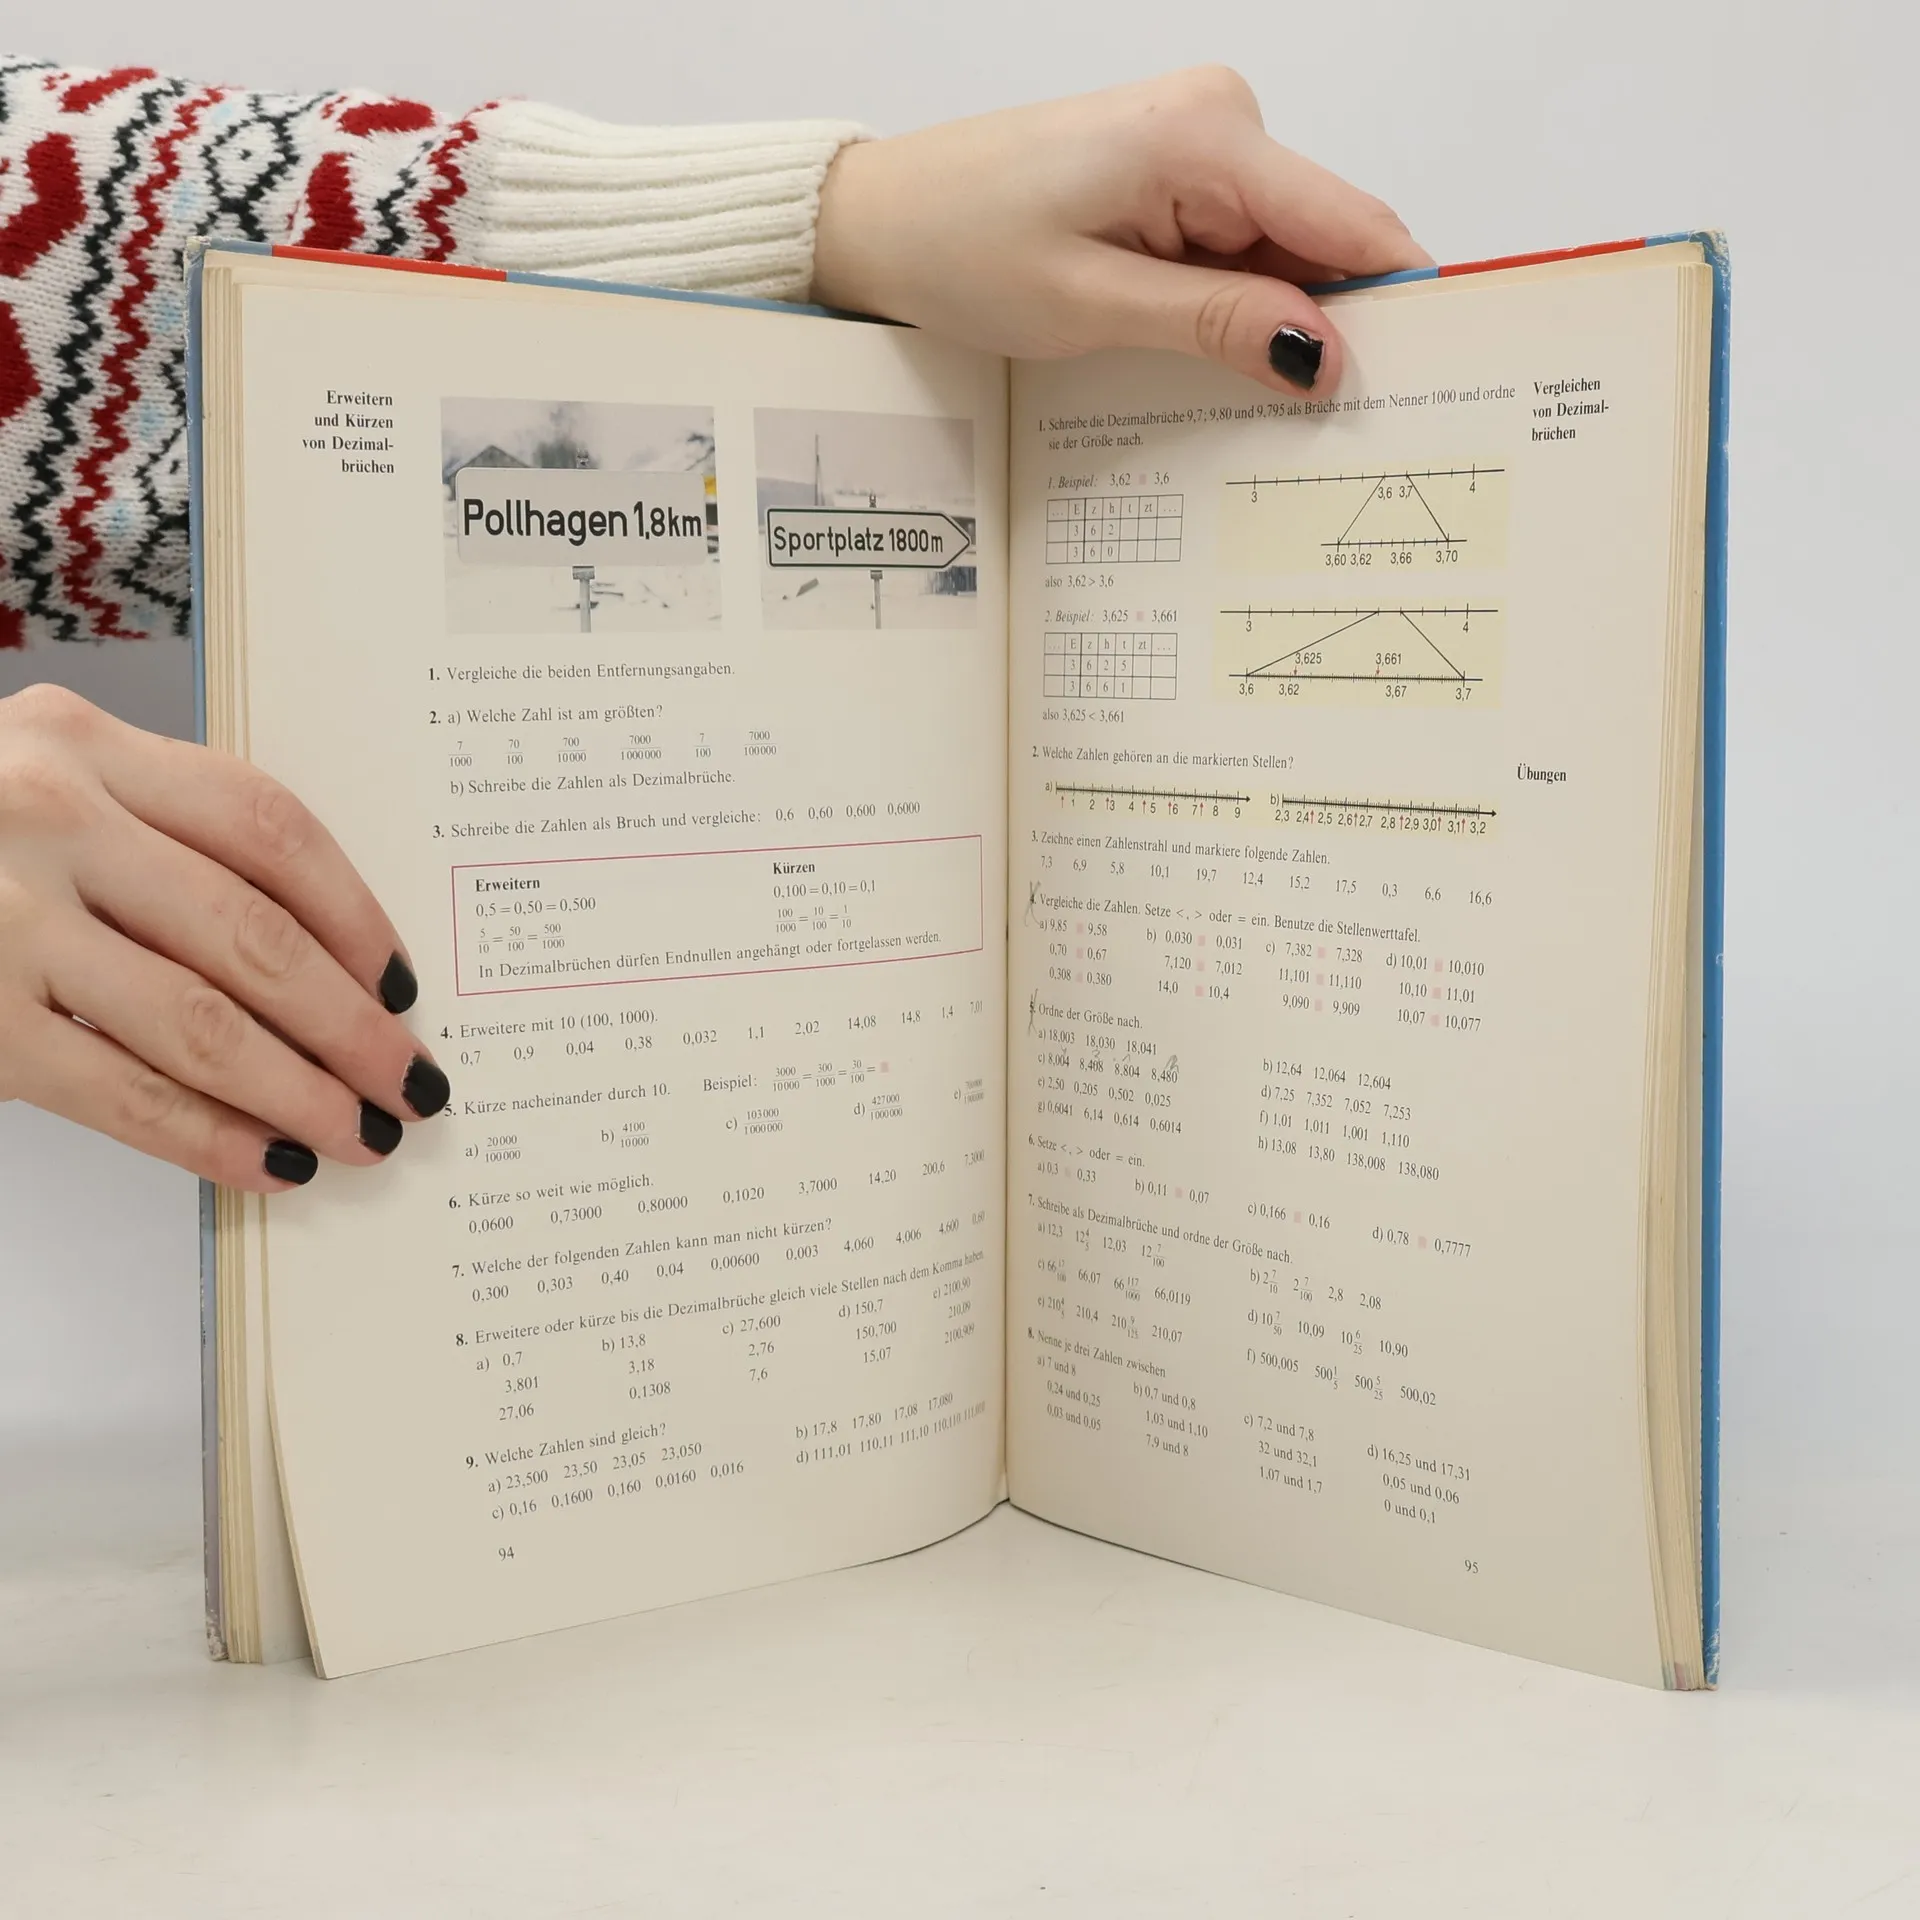 Erweitern
und Kürzen
von Dezimal-
brüchen
Pollhagen 1,8km
Sportplatz 1800m
1. Vergleiche die beiden Entfernungsangaben.
2. a) Welche Zahl ist am größten?
7/1000 70/100 700/10000 7000/1000000 7/100 7000/100000
b) Schreibe die Zahlen als Dezimalbrüche.
3. Schreibe die Zahlen als Bruch und vergleiche: 0,6 0,60 0,600 0,6000
Erweitern
0,5 = 0,50 = 0,500
5/10 = 50/100 = 500/1000
Kürzen
0,100 = 0,10 = 0,1
100/1000 = 10/100 = 1/10
In Dezimalbrüchen dürfen Endnullen angehängt oder fortgelassen werden.
4. Erweitere mit 10 (100, 1000).
0,7 0,9 0,04 0,38 0,032 1,1 2,02 14,08 14,8 1,4 7,01
5. Kürze nacheinander durch 10. Beispiel: 3000/10000 = 300/1000 = 30/100 =
a) 20000/100000 b) 4100/10000 c) 103000/1000000 d) 427000/1000000 e)
6. Kürze so weit wie möglich.
0,0600 0,73000 0,80000 0,1020 3,7000 14,20 200,6 7,3000
7. Welche der folgenden Zahlen kann man nicht kürzen?
0,300 0,303 0,40 0,04 0,00600 0,003 4,060 4,006 4,600 0,60
8. Erweitere oder kürze bis die Dezimalbrüche gleich viele Stellen nach dem Komma haben.
a) 0,7 b) 13,8 c) 27,600 d) 150,7 e) 2100,90
3,801 3,18 2,76 150,700 210,09
27,06 0,1308 7,6 15,07 2100,909
9. Welche Zahlen sind gleich?
a) 23,500 23,50 23,05 23,050 b) 17,8 17,80 17,08 17,080
c) 0,16 0,1600 0,160 0,0160 0,016 d) 111,01 110,11 111,10 110,110
94
Vergleichen
von Dezimal-
brüchen
1. Schreibe die Dezimalbrüche 9,7; 9,80 und 9,795 als Brüche mit dem Nenner 1000 und ordne
sie der Größe nach.
1. Beispiel: 3,62 3,6
... E z h t zt ...
3 6 2
3 6 0
also 3,62 > 3,6
3 3,6 3,7 4
3,60 3,62 3,66 3,70
2. Beispiel: 3,625 3,661
... E z h t zt ...
3 6 2 5
3 6 6 1
also 3,625 < 3,661
3 4
3,625 3,661
3,6 3,62 3,67 3,7
Übungen
2. Welche Zahlen gehören an die markierten Stellen?
a) 1 2 3 4 5 6 7 8 9
b) 2,3 2,4 2,5 2,6 2,7 2,8 2,9 3,0 3,1 3,2
3. Zeichne einen Zahlenstrahl und markiere folgende Zahlen.
7,3 6,9 5,8 10,1 19,7 12,4 15,2 17,5 0,3 6,6 16,6
4. Vergleiche die Zahlen. Setze <, > oder = ein. Benutze die Stellenwerttafel.
a) 9,85 9,58 b) 0,030 0,031 c) 7,382 7,328 d) 10,01 10,010
0,70 0,67 7,120 7,012 11,101 11,110 10,10 11,01
0,308 0,380 14,0 10,4 9,090 9,909 10,07 10,077
5. Ordne der Größe nach.
a) 18,003 18,030 18,041 b) 12,64 12,064 12,604
c) 8,004 8,408 8,804 8,480 d) 7,25 7,352 7,052 7,253
e) 2,50 0,205 0,502 0,025 f) 1,01 1,011 1,001 1,110
g) 0,6041 6,14 0,614 0,6014 h) 13,08 13,80 138,008 138,080
6. Setze <, > oder = ein.
a) 0,3 0,33 b) 0,11 0,07 c) 0,166 0,16 d) 0,78 0,7777
7. Schreibe als Dezimalbrüche und ordne der Größe nach.
a) 12,3 12 4/5 12,03 12 7/100 b) 2 7/10 2 7/100 2,8 2,08
c) 66 17/100 66,07 66 117/1000 66,0119 d) 10 7/50 10,09 10 6/25 10,90
e) 210 4/5 210,4 210 9/125 210,07 f) 500,005 500 1/5 500 5/25 500,02
8. Nenne je drei Zahlen zwischen
a) 7 und 8 b) 0,7 und 0,8 c) 7,2 und 7,8 d) 16,25 und 17,31
0,24 und 0,25 1,03 und 1,10 32 und 32,1 0,05 und 0,06
0,03 und 0,05 7,9 und 8 1,07 und 1,7 0 und 0,1
95